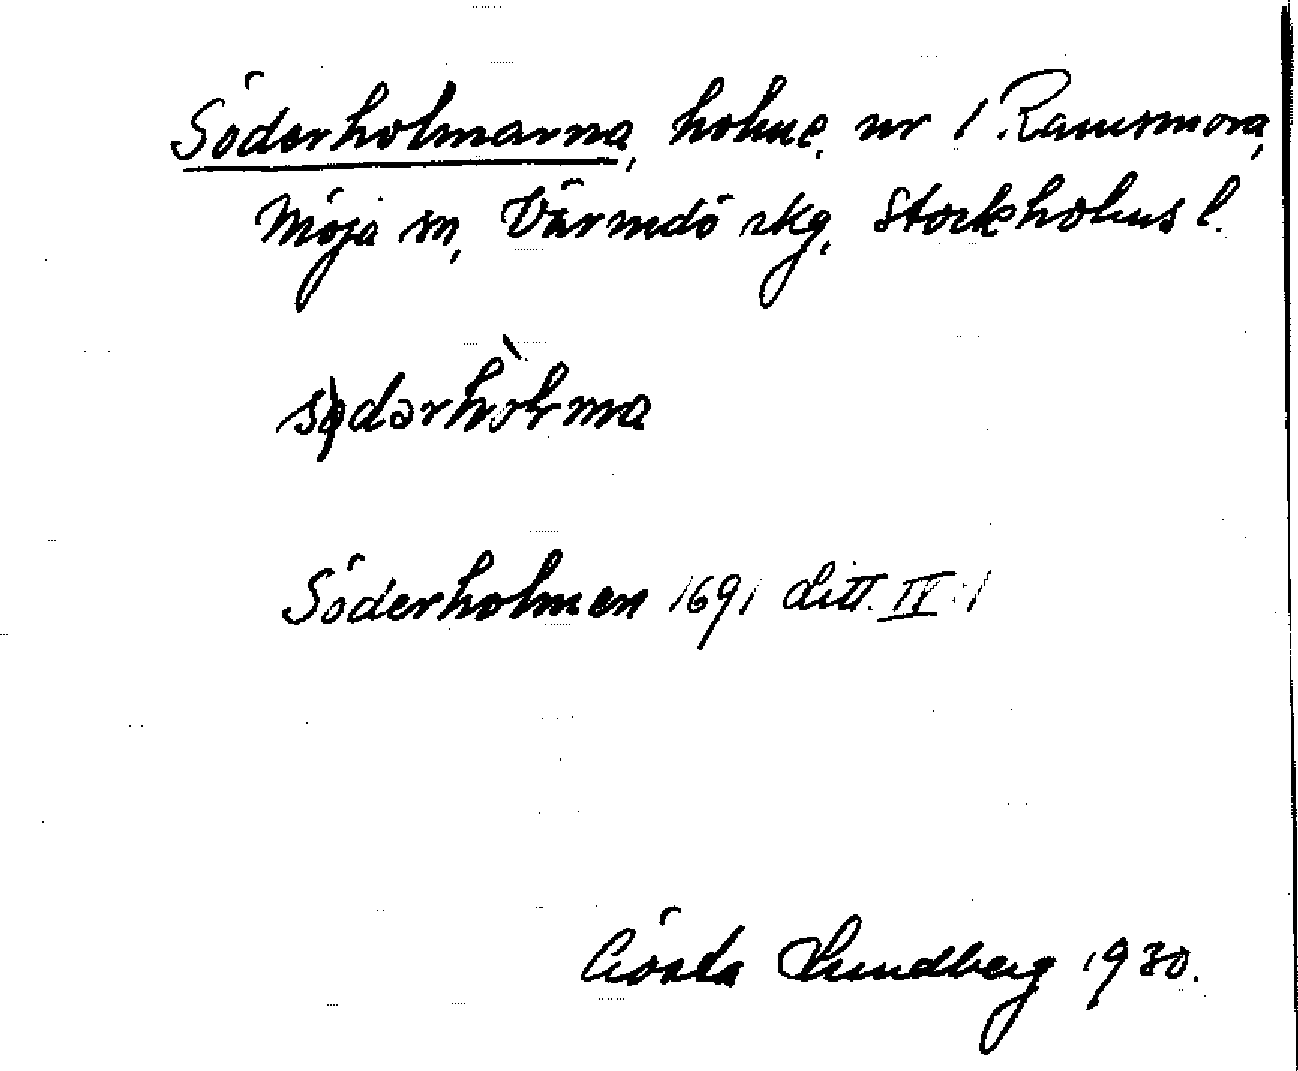 Söderholmarna, holme, nr 1 Ramsmora,
Möja sn, Värmdö skg, Stockholms l.
södərhòlma
Söderholmen 1691 Litt. IV:1
Gösta Lundberg 1930.